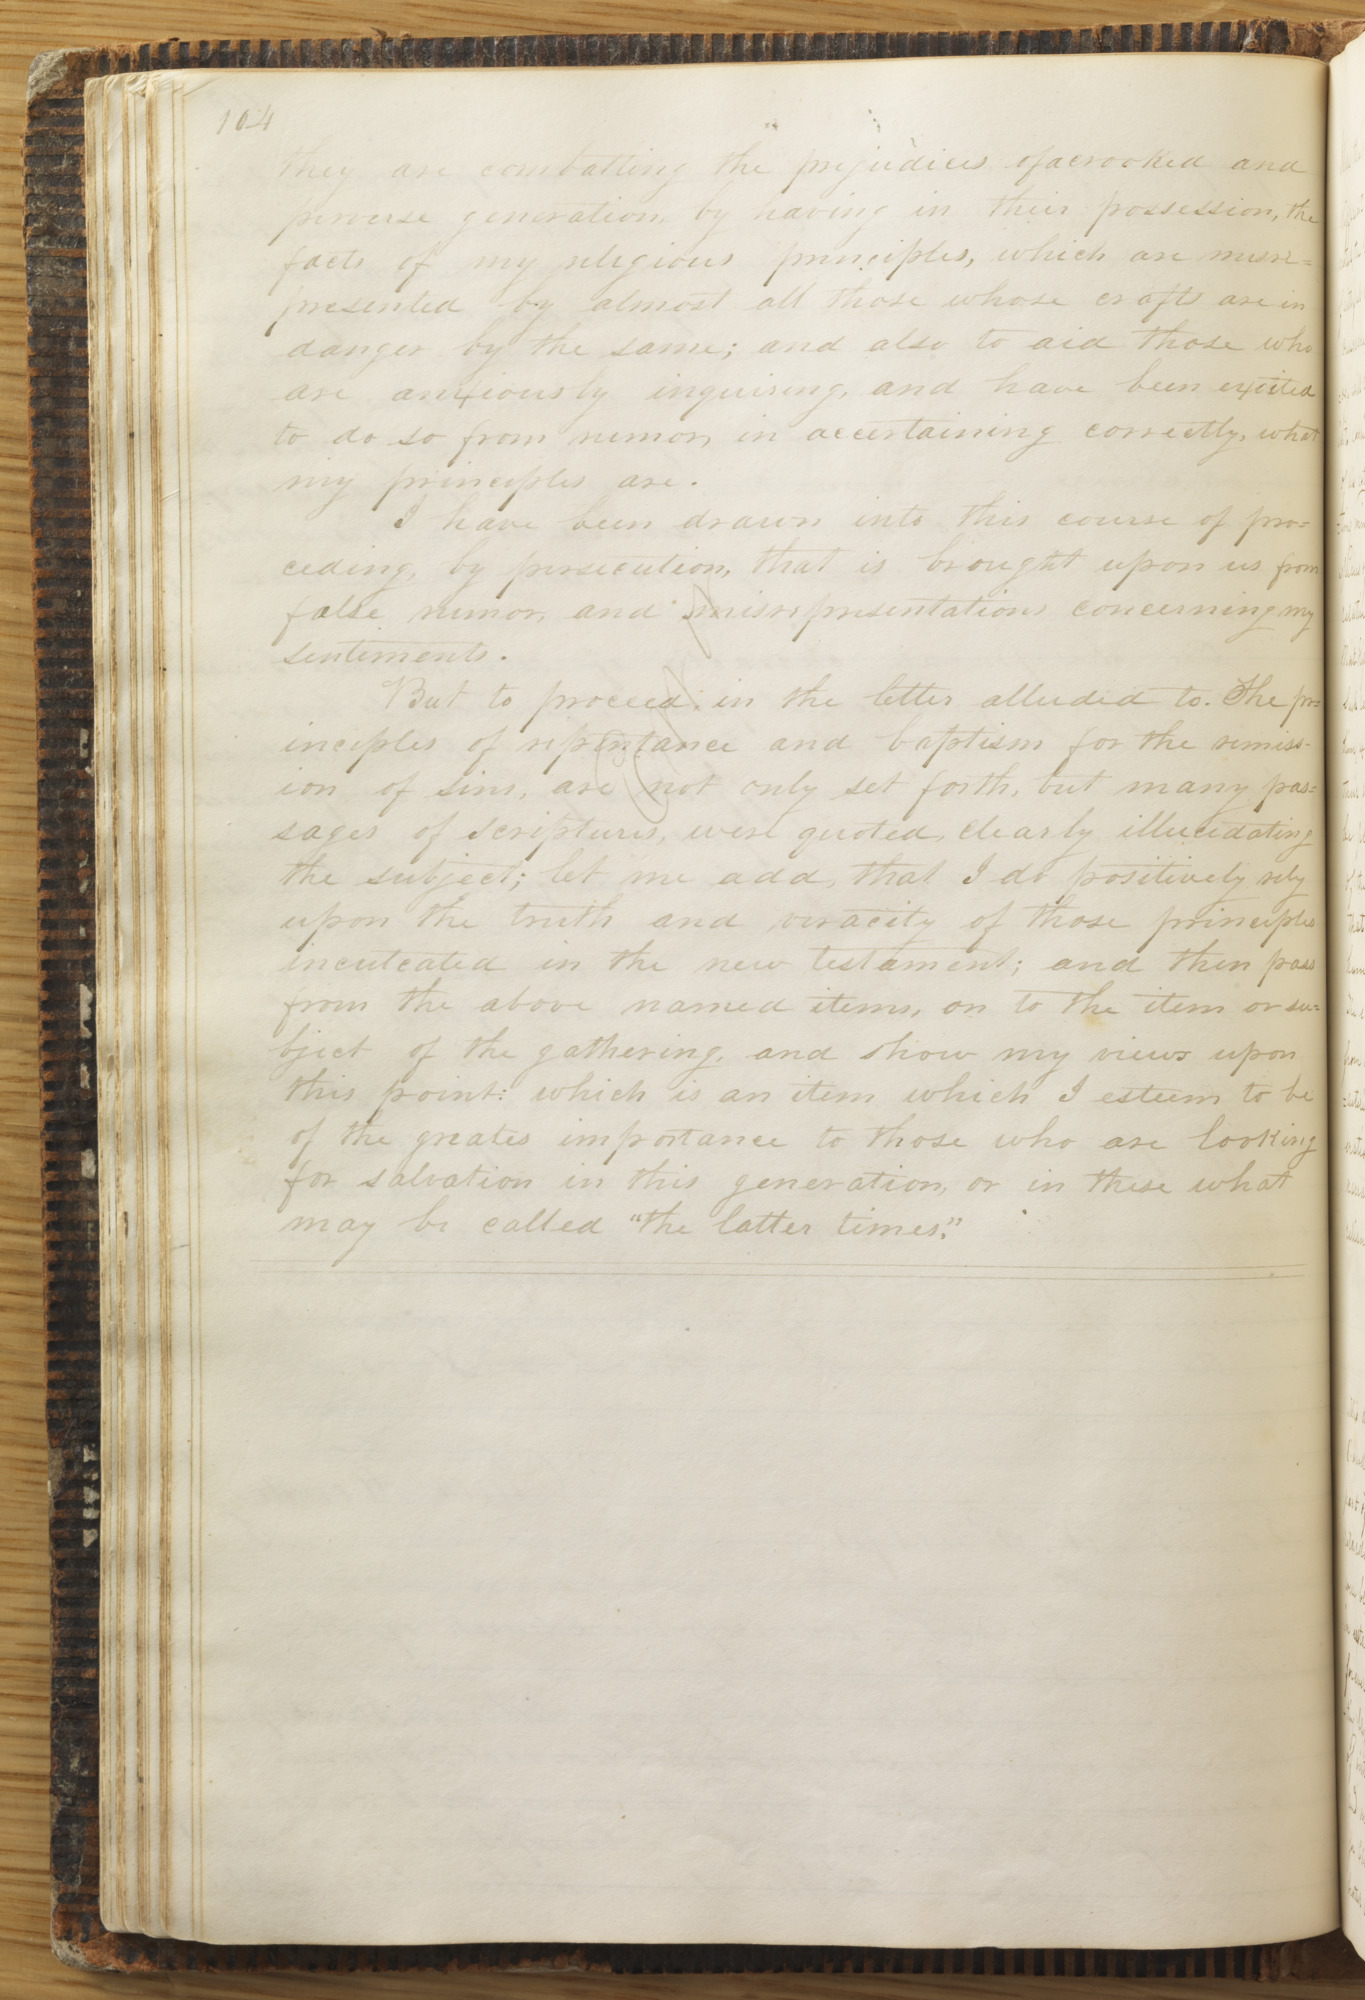 104
they are combatting the prejudices of a crooked and
perverse generation, by having in their possession, the
facts of my religious principles, which are misre=
presented by almost all those whose crafts are in
danger by the same; and also to aid those who
are anxiously inquiring, and have been excited
to do so from rumor, in accertaining correctly, what
my principles are.
I have been drawn into this course of pro=
ceding, by persecution, that is brought upon us from
false rumor, and misrepresentations concerning my
sentiments.
But to proceed: in the letter alluded to. The pr=
inciples of repentance and baptism for the remiss-
ion of sins, are not only set forth, but many pas=
sages of scriptures, were quoted, clearly illucidating
the subject; let me add, that I do positively rely
upon the truth and veracity of those principles
inculcated in the new testament; and then pass
from the above named items, on to the item or su=
bject of the gathering, and show my views upon
this point: which is an item which I esteem to be
of the greates importance to those who are looking
for salvation in this generation, or in these what
may be called "the latter times."